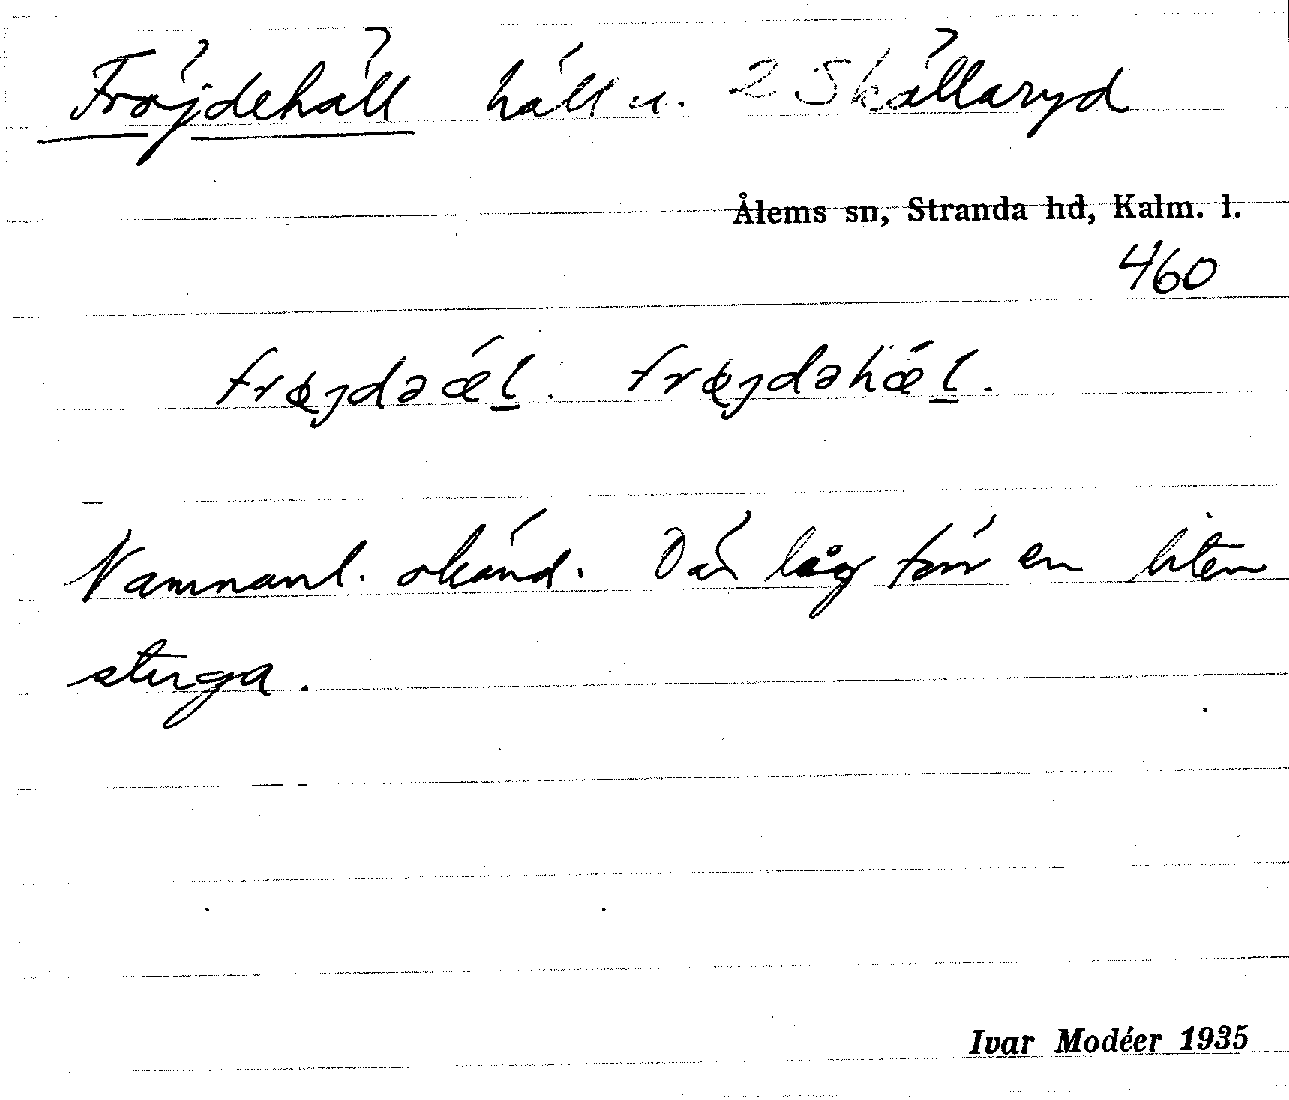 Fröjdehäll häll u. 2 Skällaryd
Ålems sn, Stranda hd, Kalm. l.
460
Namnanl. okänd. Där låg förr en liten
stuga.
Ivar Modéer 1935